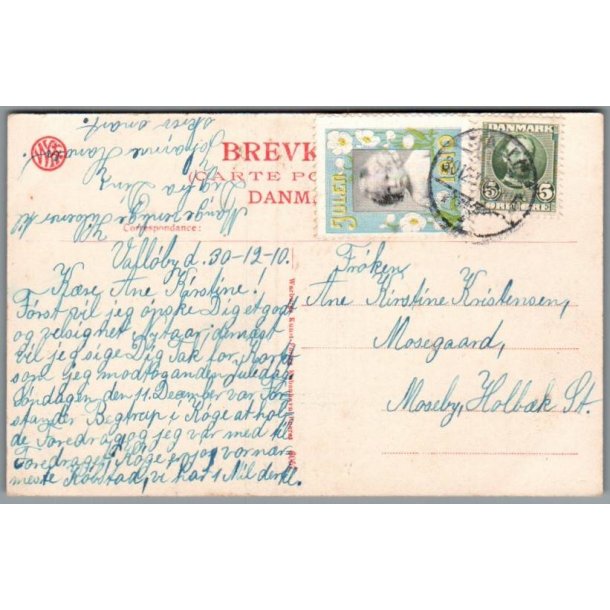 BREVK
(CARTE PO
DANM
Correspondance:
JULEN 1910
DANMARK
5 5
ØRE ØRE
Vallöby d. 30-12-10.
Kære Ane Kirstine!
Først vil jeg ønske Dig et godt
og velsignet Nytaar, dernæst
vil jeg sige Dig Tak for Kortet
som jeg modtog anden Juledag.
Søndagen den 11. December var For-
stander Begtrup i Köge at hol-
de Foredrag, og jeg var med til
Foredraget, Köge er jo vor nær-
meste Købstad, vi har 1 Mil dertil.
Mange venlige Hilsener til
Dig fra Din
Johanne
skriv snart.
Frøken,
Ane Kirstine Kristensen,
Mosegaard,
Moseby, Holbæk St.